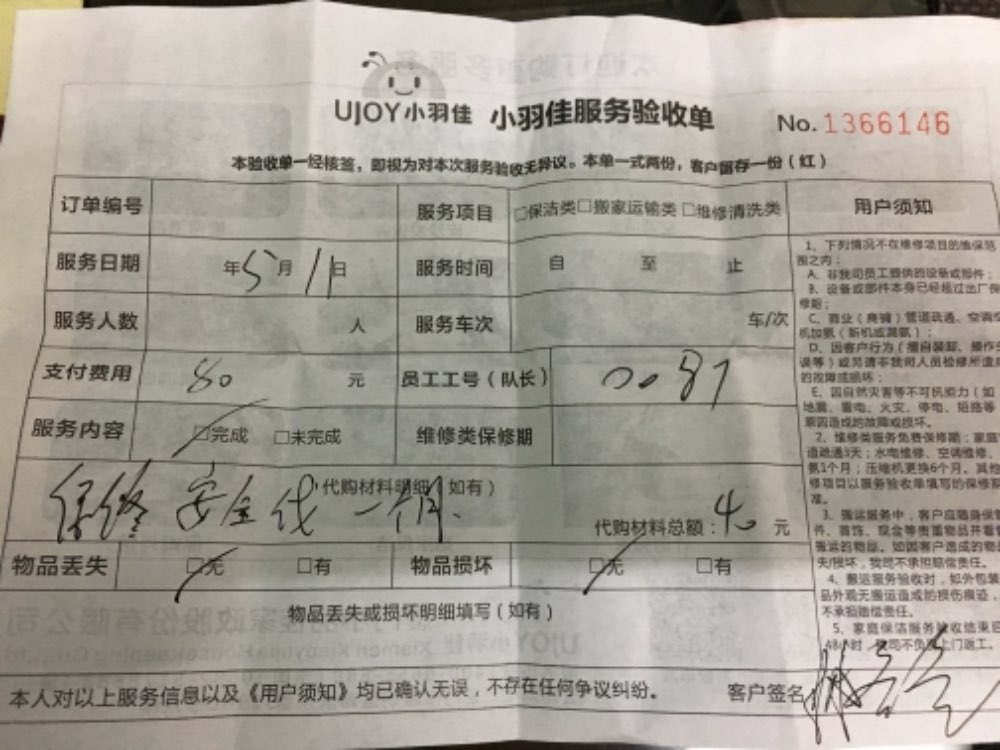 UJOY小羽佳 小羽佳服务验收单 No. 1366146
本验收单一经核签，即视为对本次服务验收无异议。本单一式两份，客户留存一份（红）
订单编号 服务项目 □保洁类□搬家运输类 □维修清洗类 用户须知
服务日期 年5月11日 服务时间 自 至 止
服务人数 人 服务车次 车/次
支付费用 80 元 员工工号（队长） 0087
服务内容 □完成 □未完成 维修类保修期
代购材料明细（如有）
保修 安全线一个月.
代购材料总额：40 元
物品丢失 □无 □有 物品损坏 □无 □有
物品丢失或损坏明细填写（如有）
本人对以上服务信息以及《用户须知》均已确认无误，不存在任何争议纠纷。 客户签名
1、下列情况不在维修项目的维保范
围之内：
A、非我司员工提供的设备或部件；
B、设备或部件本身已经超过出厂保
修期；
C、商业（商铺）管道疏通、空调空
机加氨（新机或漏氨）；
D、因客户行为（擅自装卸、操作失
误等）或另请非我司人员检修所造成
的故障或损坏；
E、因自然灾害等不可抗力（如
地震、雷电、火灾、停电、短路等
原因造成的故障或损坏。
2、维修类服务免费保修期：家庭
道疏通3天；水电维修、空调维修、
氨1个月；压缩机更换6个月。其他
修项目以服务验收单填写的保修期
准。
3、搬运服务中，客户应随身保
件、首饰、现金等贵重物品并看管
搬运的物品。如因客户造成的物品
失/损坏，我司不承担赔偿责任。
4、搬运服务验收时，如外包装
品外观无搬运造成的损伤痕迹，
不承担赔偿责任。
5、家庭保洁服务验收结束后
48小时，我司不负责上门返工。